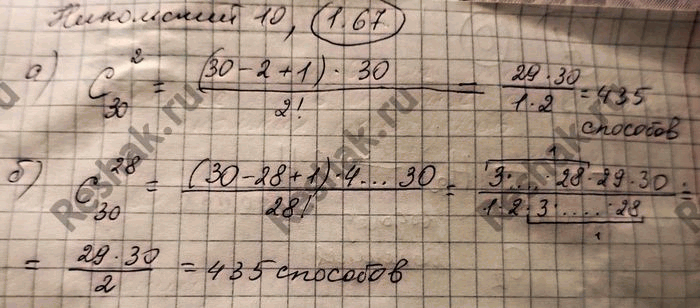 Никольский 10, 1.67
а) C₃₀² = (30-2+1)·30 / 2! = 29·30 / 1·2 = 435
способов
б) C₃₀²⁸ = (30-28+1)·4...30 / 28! = 3·...·28·29·30 / 1·2·3·....·28 =
1
1
= 29·30 / 2 = 435 способов
Reshak.ru
Reshak.ru
Reshak.ru